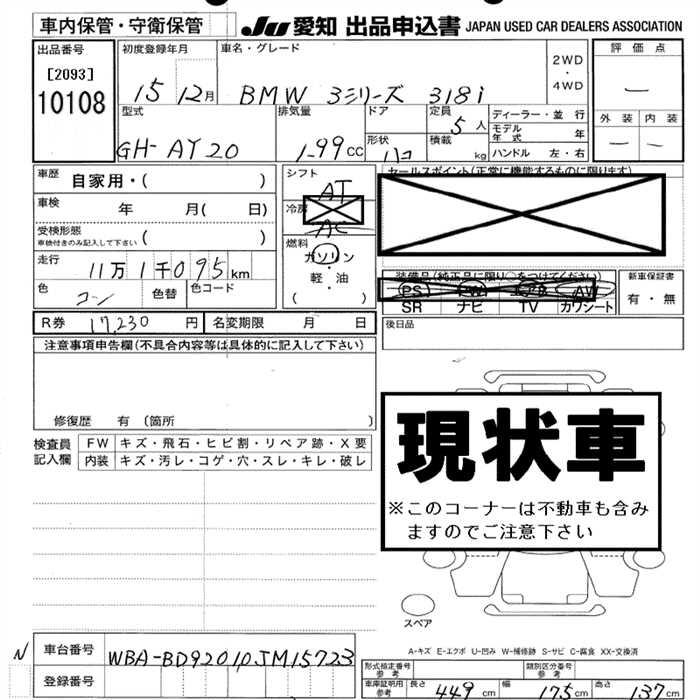 車内保管・守衛保管 JU 愛知 出品申込書 JAPAN USED CAR DEALERS ASSOCIATION
出品番号 初度登録年月 車名・グレード 評価点
[2093] 2WD・4WD
10108 15 12月 BMW 3シリーズ 318i —
型式 排気量 ドア 定員 5人 ディーラー・並行 外装 内装
モデル年式 年
GH-AY20 1.99cc 形状 ハコ 積載 kg ハンドル 左・右 — —
車歴 自家用・( ) シフト AT セールスポイント(正常に機能するものに限ります)
車検 年 月( 日) 冷房 AC
受検形態 ( )
車検付きのみ記入して下さい
燃料 ガソリン
軽・油
( )
走行 11万1千095km
装備品(純正品に限り○をつけてください) 新車保証書
色 コン 色替 色コード
PS PW AV
SR ナビ TV カワシート
有・無
R券 17,230円 名変期限 月 日 後日品
注意事項申告欄(不具合内容等は具体的に記入して下さい)
現状車
※このコーナーは不動車も含みますのでご注意下さい
修復歴 有 (箇所 )
検査員記入欄 FW キズ・飛石・ヒビ割・リペア跡・X要
内装 キズ・汚レ・コゲ・穴・スレ・キレ・破レ
スペア
A-キズ E-エクボ U-凹み W-補修跡 S-サビ C-腐食 XX-交換済
N 車台番号 WBA-BD9201PJM15723
型式指定番号 参考 類別区分番号 参考
登録番号
車庫証明用 参考 長さ 449cm 幅 175cm 高さ 137cm